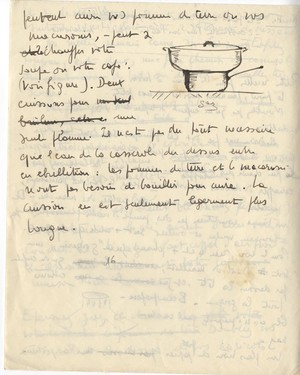 peuvent cuire vos pommes de terre ou vos
macaronis, peut
chauffer votre
soupe ou votre café.
(Voir figure). Deux
cuissons pour un seul
brûleur, une
seule flamme. Il n'est pas du tout nécessaire
que l'eau de la casserole du dessus entre
en ébullition : les pommes de terre et le macaroni
n'ont pas besoin de bouillir pour cuire. La
cuisson en est seulement légèrement plus
longue.
16